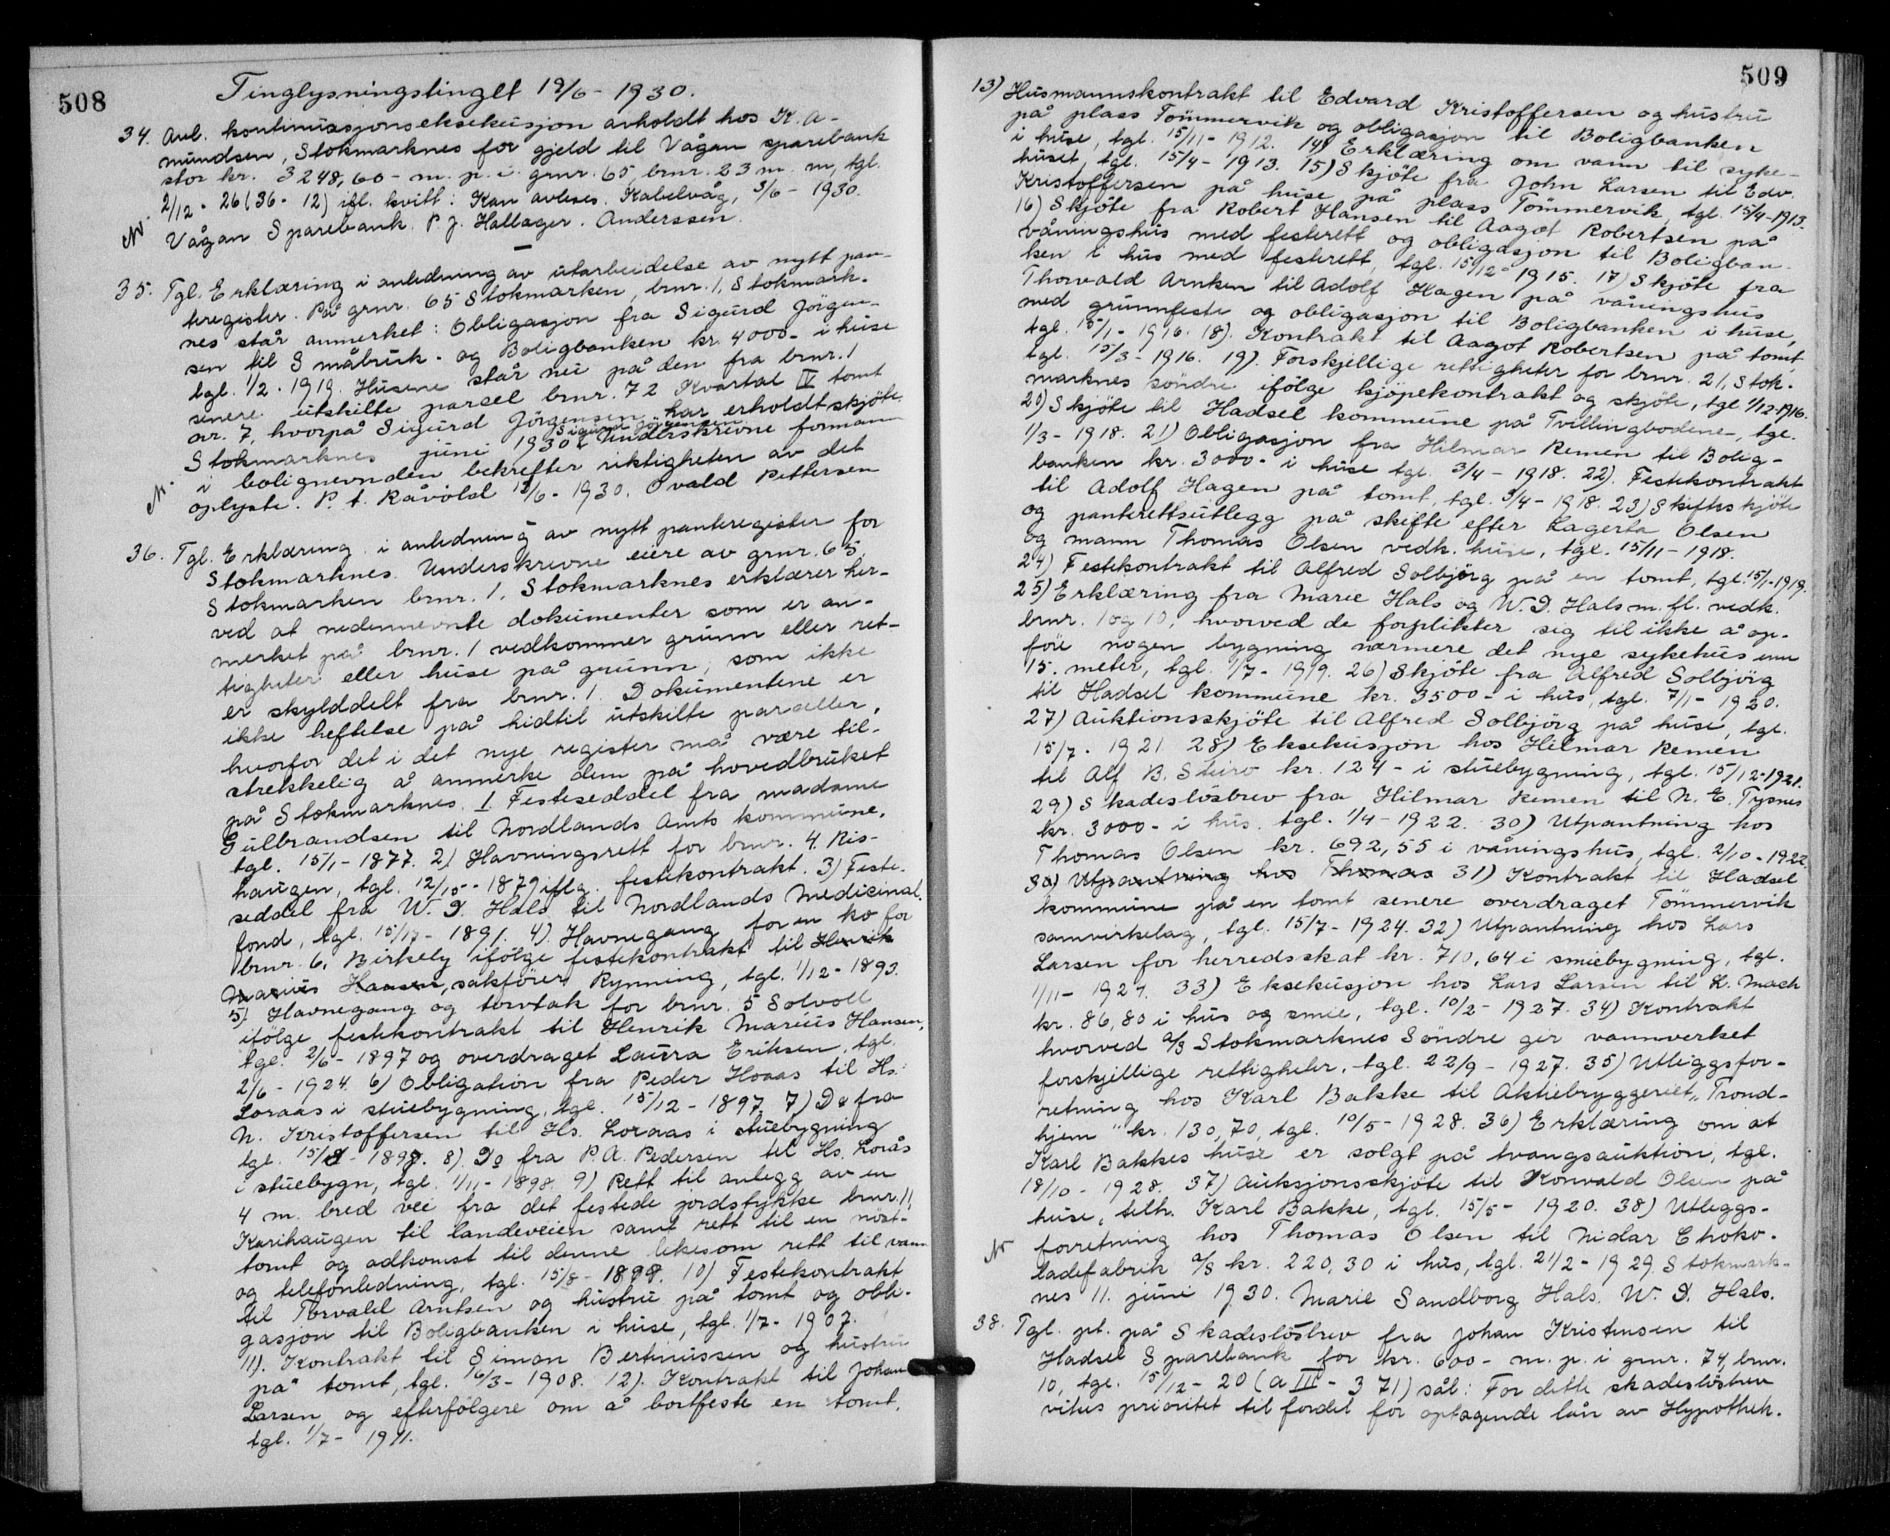 508
Tinglysningstinget 19/6 - 1930.
34. Avl. kontinuasjonseksekusjon avholdt hos K. A-
mundsen, Stokmarknes for gjeld til Vågan sparebank
stor kr. 3248,60 - m. p. i. gnr. 65, brnr. 23 m. m, tgl.
2/12 - 26 (36 - 12) ifl. kvitt: Kan avleses. Kabelvåg, 3/6 - 1930.
Vågan Sparebank. P J. Hallager. Anderssen.
35. Tgl. Erklæring i anledning av utarbeidelse av nytt pan-
teregister. På grnr. 65 Stokmarken, brnr. 1, Stokmark-
nes står anmerket: Obligasjon fra Sigurd Jörgen-
sen til Småbruk- og Boligbanken kr. 4000- i huse
tgl. 1/2 - 1919. Husene står nu på den fra brnr. 1
senere utskilte parsel brnr. 72 Kvartal IV tomt
nr. 7, hvorpå Sigurd Jörgensen har erholdt skjöte.
Stokmarknes juni 1930 Sigurd Jörgensen. Underskrevne formann
i bolignevnden bekrefter riktigheten av det
oplyste. P. t. Råvold 13/6 - 1930. Ovald Pettersen
36. Tgl. Erklæring i anledning av nytt panteregister for
Stokmarknes. Underskrevne eiere av grnr. 65,
Stokmarken brnr. 1, Stokmarknes erklærer her-
ved at nedennevnte dokumenter som er an-
merket på brnr. 1 vedkommer grunn eller ret-
tigheter eller huse på grunn, som ikke
er skylddelt fra brnr. 1. Dokumentene er
ikke heftelse på hidtil utskilte parseller,
hvorfor det i det nye register må være til-
strekkelig å anmerke dem på hovedbruket
på Stokmarknes. 1. Festeseddel fra madame
Gulbrandsen til Nordlands Amts kommune,
tgl. 15/1 - 1877. 2) Havningsrett for brnr. 4. Ris-
haugen, tgl. 12/10 - 1879 iflg. festekontrakt. 3) Feste-
seddel fra W. D. Hals til Nordlands Medicinal-
fond, tgl. 15/12 - 1891. 4) Havnegang for en ko for
brnr. 6, Birkely ifölge festekontrakt til Henrik
Marius Haasen, sakförer Rynning, tgl. 1/12 - 1893.
5) Havnegang og torvtak for brnr. 5 Solvoll
ifölge festekontrakt til Henrik Marius Hansen,
tgl. 2/6 - 1897 og overdraget Laura Eriksen, tgl.
2/6 - 1924. 6) Obligation fra Peder Hoaas til Hs.
Loraas i stuebygning, tgl. 15/12 - 1897. 7) Do fra
N. Kristoffersen til Hs. Loraas i stuebygning
tgl. 15/8 - 1898. 8) Do fra P. A. Pedersen til Hs. Lorås
i stuebygn, tgl. 1/11 - 1898. 9) Rett til anlegg av en
4 m. bred vei fra det festede jordstykke brnr. 11,
Karihaugen til landeveien samt rett til en nöst-
tomt og adkomst til denne likesom rett til vann
og telefonledning, tgl. 15/8 - 1899. 10) Festekontrakt
til Torvald Arntsen og hustru på tomt og obli-
gasjon til Boligbanken i huse, tgl. 1/7 - 1907.
11). Kontrakt til Simon Bertinussen og hustru
på tomt, tgl. 16/3 - 1908. 12). Kontrakt til Johan
Larsen og efterfölgere om å bortfeste en tomt,
tgl. 1/7 - 1911.
509
13) Husmannskontrakt til Edvard Kristoffersen og hustru
på plass Tömmervik og obligasjon til Boligbanken
i huse, tgl. 15/11 - 1912. 14) Erklæring om vann til syke-
huset, tgl. 15/4 - 1913. 15) Skjöte fra John Larsen til Edv.
Kristoffersen på huse på plass Tömmervik, tgl. 15/4-1913.
16) Skjöte fra Robert Hansen til Aagot Robertsen på
våningshus med festerett og obligasjon til Boligban-
ken i hus med festerett, tgl. 15/12 - 1915. 17) Skjöte fra
Thorvald Arnken til Adolf Hagen på våningshus
med grunnfeste og obligasjon til Boligbanken i huse,
tgl. 15/1 - 1916. 18). Kontrakt til Aagot Robertsen på tomt,
tgl. 15/3 - 1916. 19). Forskjellige rettigheter for brnr. 21, Stok-
marknes söndre ifölge kjöpekontrakt og skjöte, tgl. 1/12-1916.
20) Skjöte til Hadsel kommune på Tvillingbodene, tgl.
1/3 - 1918. 21) Obligasjon fra Hilmar Remen til Bolig-
banken kr. 3000- i huse tgl. 3/4 - 1918. 22). Festekontrakt
til Adolf Hagen på tomt, tgl. 3/4 - 1918. 23) Skifteskjöte
og panterettsutlegg på skifte efter Lagerta Olsen
og mann Thomas Olsen vedk. huse, tgl. 15/11 - 1918.
24) Festekontrakt til Alfred Solbjörg på en tomt, tgl. 15/1-1919.
25) Erklæring fra Marie Hals og W. D. Hals m. fl. vedk.
brnr. 1 og 10, hvorved de forplikter sig til ikke å op-
före nogen bygning nærmere det nye sykehus enn
15. meter, tgl. 1/7 - 1919. 26) Skjöte fra Alfred Solbjörg
til Hadsel kommune kr. 3500- i hus, tgl. 7/1 - 1920.
27) Auktionsskjöte til Alfred Solbjörg på huse, tgl.
15/7 - 1921 28) Eksekusjon hos Hilmar Remen
til Alf B. Stuiro kr. 124 - i stuebygning, tgl. 15/12-1921.
29) Skadeslösbrev fra Hilmar Remen til N. E. Tysnes
kr. 3000- i hus. tgl. 1/4 - 1922. 30) Utpantning hos
Thomas Olsen kr. 692,55 i våningshus, tgl. 2/10 - 1922
30) Utpantning hos Thomas 31) Kontrakt til Hadsel
kommune på en tomt senere overdraget Tömmervik
samvirkelag, tgl. 15/7 - 1924. 32) Utpantning hos Lars
Larsen for herredsskat kr. 710,64 i smiebygning, tgl.
1/11 - 1927. 33) Eksekusjon hos Lars Larsen til L. Mack
kr. 86,80 i hus og smie, tgl. 10/2 - 1927. 34) Kontrakt
hvorved A/S Stokmarknes Söndre gir vannverket
forskjellige rettigheter, tgl. 22/9 - 1927. 35) Utleggsfor-
retning hos Karl Bakke til Aktiebryggeriet "Trond-
hjem" kr. 130,70, tgl. 10/5 - 1928. 36) Erklæring om at
Karl Bakkes huse er solgt på tvangsauktion, tgl.
18/10 - 1928. 37) Auksjonsskjöte til Konvald Olsen på
huse, tilh. Karl Bakke, tgl. 15/5 - 1920. 38) Utleggs-
forretning hos Thomas Olsen til Nidar Choko-
ladefabrik A/S kr. 220,30 i hus, tgl. 21/2 - 1929. Stokmark-
nes 11. juni 1930. Marie Sandborg Hals. W. D. Hals.
38. Tgl. pt. på Skadeslösbrev fra Johan Kristensen til
Hadsel Sparebank for kr. 600 - m. p. i gnr. 74, brnr.
10, tgl. 15/12 - 20 (A III - 371) sål: For dette skadeslösbrev
vikes prioritet til fordel for optagende lån av Hypothek-